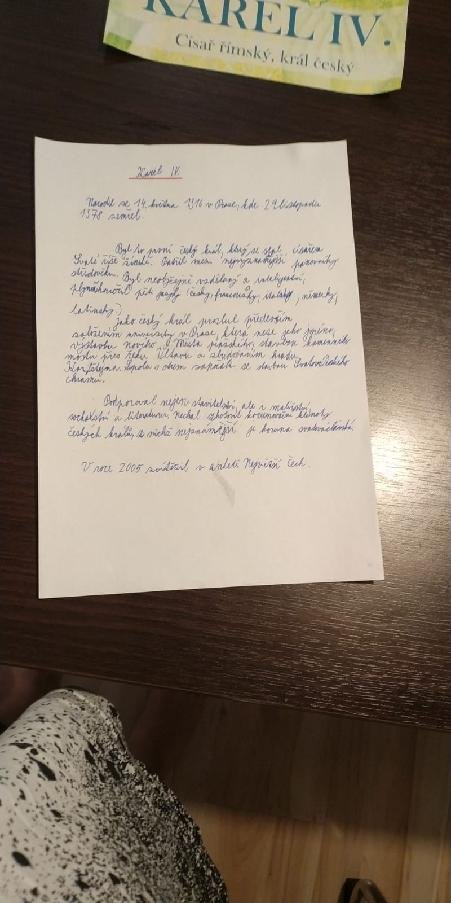 KAREL IV.
Císař římský, král český
Karel IV.
Narodil se 14. května 1316 v Praze, kde 29. listopadu
1378 zemřel.
Byl to první český král, který se stal císařem
Svaté říše římské. Patřil mezi nejvýznamnější panovníky
středověku. Byl neobyčejně vzdělaný a inteligentní,
plynně hovořil pěti jazyky (česky, francouzsky, italsky, německy,
latinsky).
Jako český král proslul především
založením univerzity v Praze, která nese jeho jméno,
výstavbou Nového Města pražského, stavbou kamenného
mostu přes řeku Vltavu a zbudováním hradu
Karlštejna. Spolu s otcem zahájil stavbu Svatovítského
chrámu.
Podporoval nejen stavitelství, ale i malířství,
sochařství a literaturu. Nechal zhotovit korunovační klenoty
českých králů, z nichž nejznámější je koruna svatováclavská.
V roce 2005 zvítězil v anketě Největší Čech.